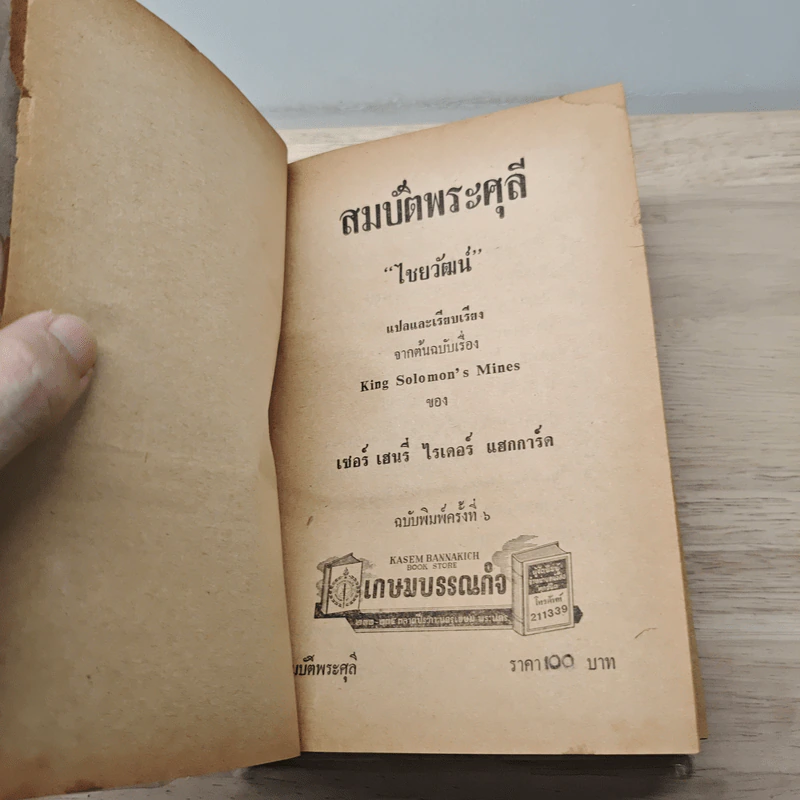 สมบัติพระศุลี
"ไชยวัฒน์"
แปลและเรียบเรียง
จากต้นฉบับเรื่อง
King Solomon's Mines
ของ
เซอร์ เฮนรี่ ไรเดอร์ แฮกการ์ด
ฉบับพิมพ์ครั้งที่ ๖
KASEM BANNAKICH
BOOK STORE
เกษมบรรณกิจ
โทรศัพท์
211339
มบัติพระศุลี
ราคา 100 บาท